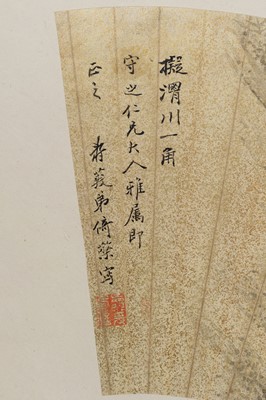 擬渭川一角
守之仁兄大人雅屬即
正之
弟倚篆寫